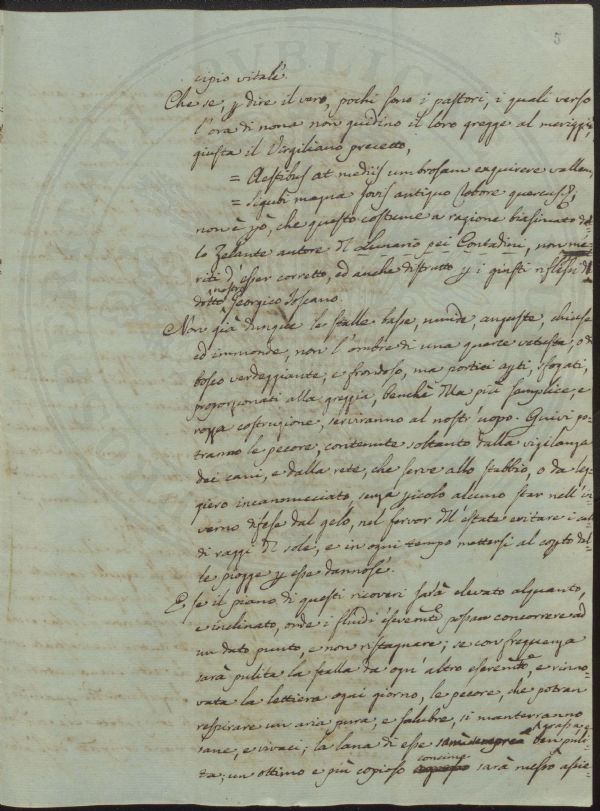 5
cipio vitale.
Che se, p dire il vero, pochi sono i pastori, i quali verso
l'ora di nona non guidino il loro gregge al meriggio,
giusta il Virgiliano precetto,
= Aestibus at mediis umbrosam exquirere vallem,
= Sicubi magna Jovis antiquo robore quercus &;
non è pò, che questo costume a ragione biasimato dal-
lo Zelante autore del Lunario pei Contadini, non me-
riti d'esser corretto, ed anche distratto p i giusti riflessi del
dotto nostro Georgico Toscano.
Non già dunque le stalle basse, umide, anguste, chiuse
ed immonde, non l'ombre di una querce vetusta, o di
bosco verdeggiante, e frondoso, ma portici apti, sfogati,
proporzionati alla greggia, benchè della più semplice, e
rozza costruzione, serviranno al nostr'uopo. Quivi po-
tranno le pecore, contenute soltanto dalla vigilanza
dei cani, e dalla rete, che serve allo stabbio, o da leg-
giero incannucciato, senza picolo alcuno star nell'in-
verno difese dal gelo, nel fervor dell'estate evitare i cal-
di raggi del sole, e in ogni tempo mettersi al copto dal-
le piogge p esse dannose.
E, se il piano di questi ricoveri sarà elevato alquanto,
e inclinato, onde i fluidi possan concorrere ad
un dato punto, e non ristagnare; se con frequenza
sarà pulita la stalla da ogn'altro e rinno-
vata la lettiera ogni giorno, le pecore, che potran
respirare un aria pura, e salubre, si manterranno
sane, e vivaci; la lana di esse ben puli-
ta; un ottimo e più copioso concime sarà messo assie-